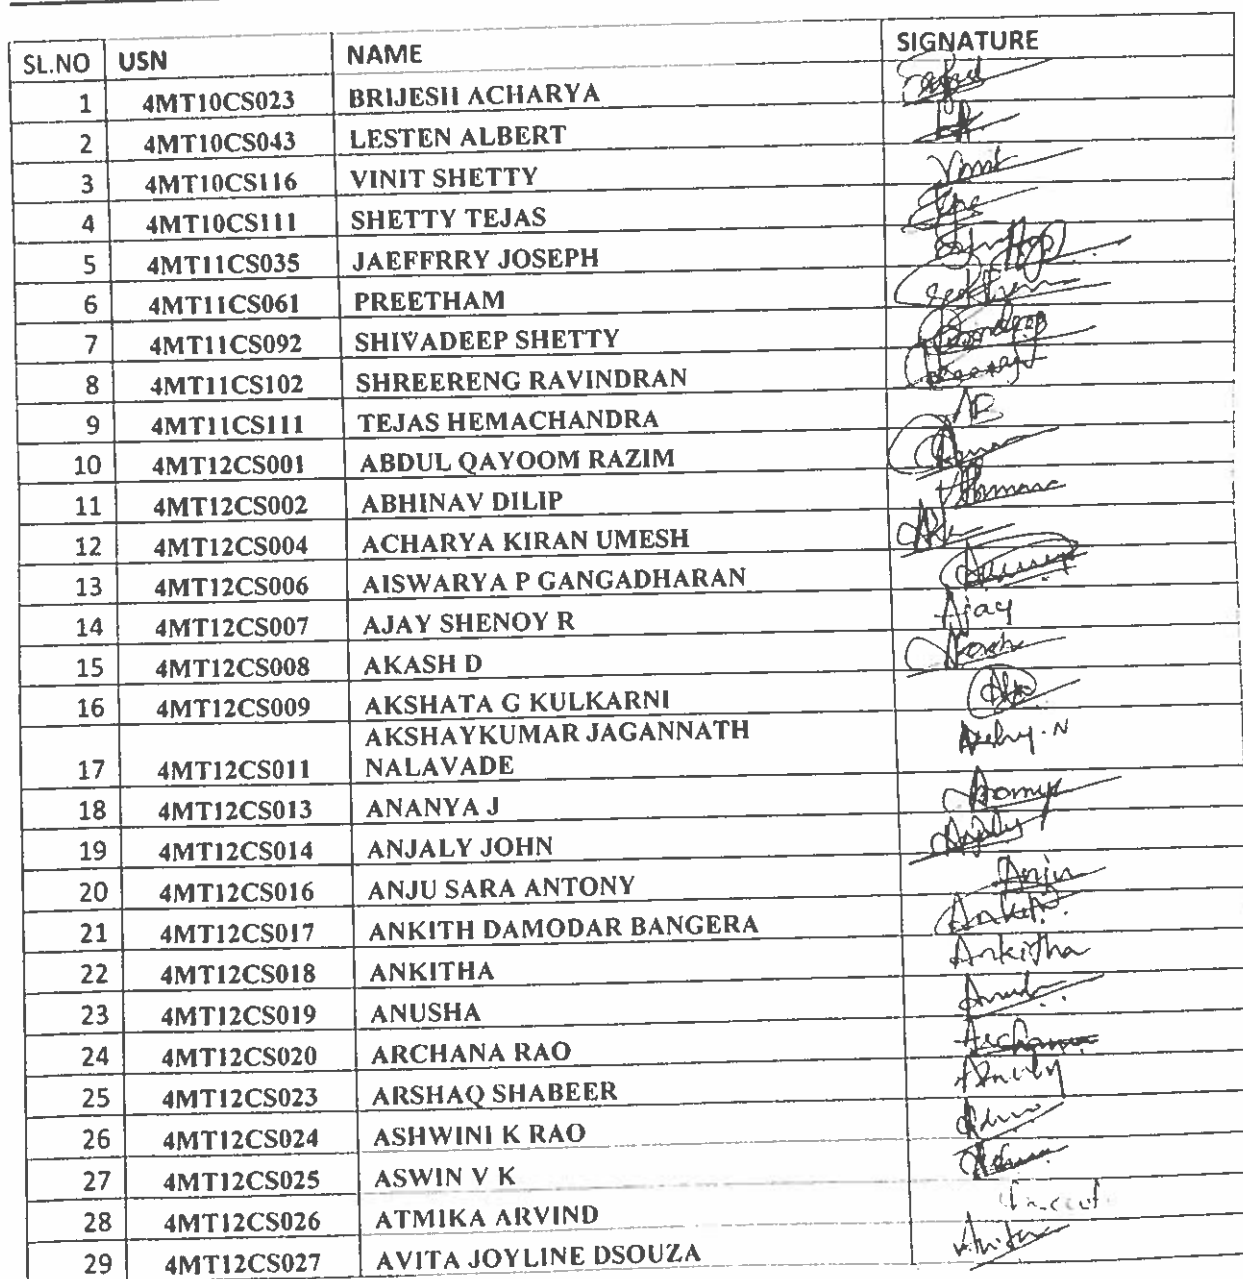 SL.NO USN NAME SIGNATURE
1 4MT10CS023 BRIJESH ACHARYA
2 4MT10CS043 LESTEN ALBERT
3 4MT10CS116 VINIT SHETTY
4 4MT10CS111 SHETTY TEJAS
5 4MT11CS035 JAEFFRRY JOSEPH
6 4MT11CS061 PREETHAM
7 4MT11CS092 SHIVADEEP SHETTY
8 4MT11CS102 SHREERENG RAVINDRAN
9 4MT11CS111 TEJAS HEMACHANDRA
10 4MT12CS001 ABDUL QAYOOM RAZIM
11 4MT12CS002 ABHINAV DILIP
12 4MT12CS004 ACHARYA KIRAN UMESH
13 4MT12CS006 AISWARYA P GANGADHARAN
14 4MT12CS007 AJAY SHENOY R Ajay
15 4MT12CS008 AKASH D
16 4MT12CS009 AKSHATA G KULKARNI
AKSHAYKUMAR JAGANNATH
17 4MT12CS011 NALAVADE
18 4MT12CS013 ANANYA J
19 4MT12CS014 ANJALY JOHN Anjaly
20 4MT12CS016 ANJU SARA ANTONY Anju
21 4MT12CS017 ANKITH DAMODAR BANGERA
22 4MT12CS018 ANKITHA Ankitha
23 4MT12CS019 ANUSHA
24 4MT12CS020 ARCHANA RAO Archana
25 4MT12CS023 ARSHAQ SHABEER
26 4MT12CS024 ASHWINI K RAO
27 4MT12CS025 ASWIN V K
28 4MT12CS026 ATMIKA ARVIND
29 4MT12CS027 AVITA JOYLINE DSOUZA